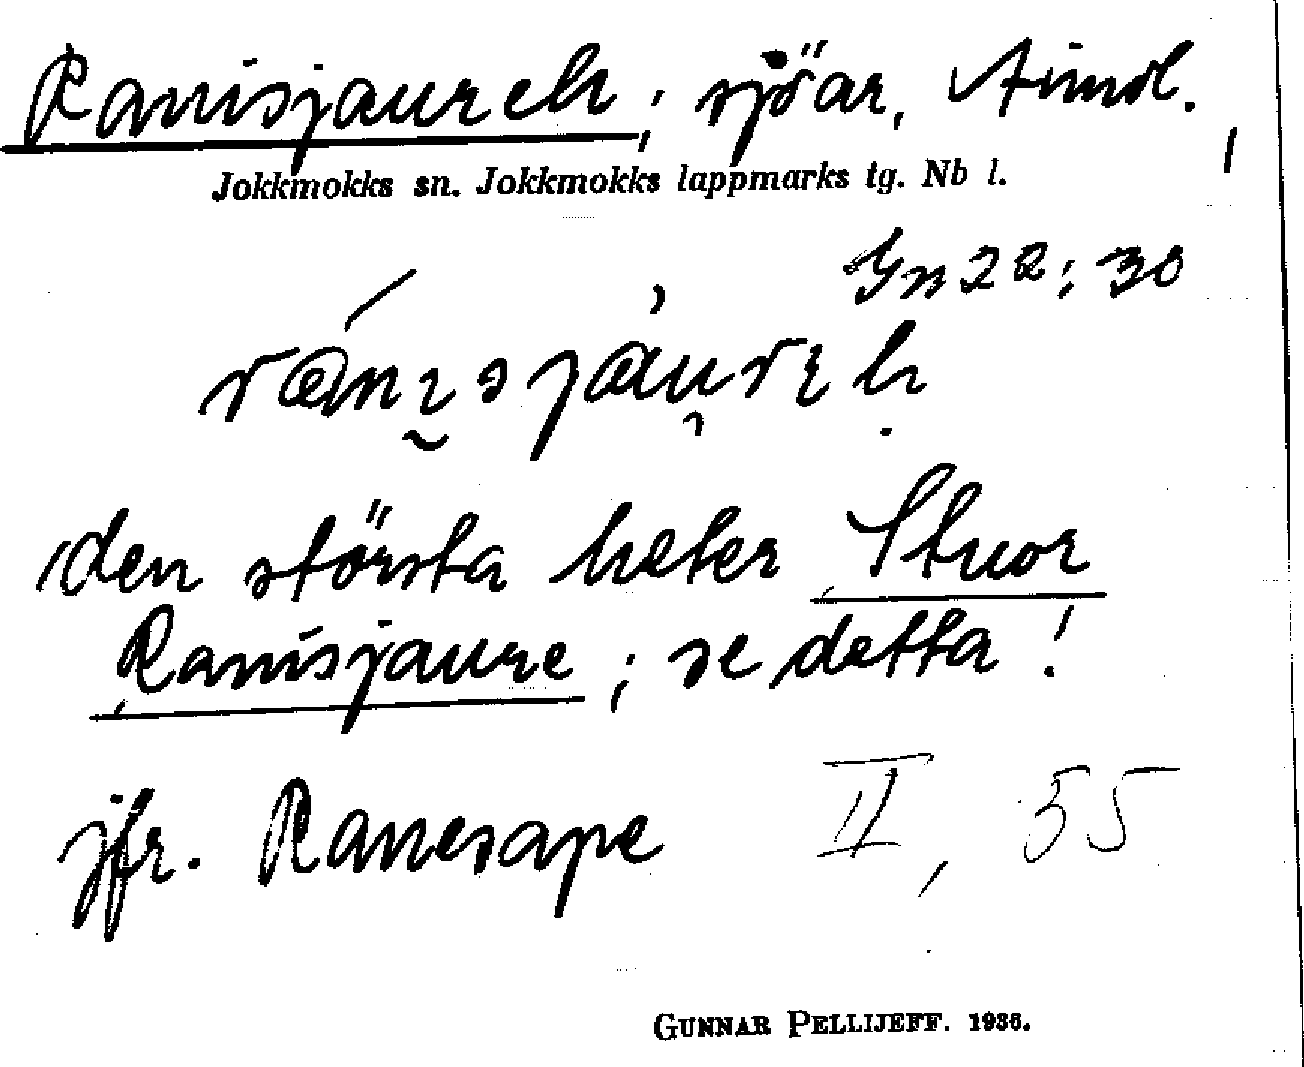 Ranisjaureh; sjöar, Aimol.,
Jokkmokks sn. Jokkmokks lappmarks tg. Nb l.
Gn 22; 30
den största heter Stuor
Ranisjaure; se detta!
jfr. Ranesape II, 55
GUNNAR PELLIJEFF. 1936.